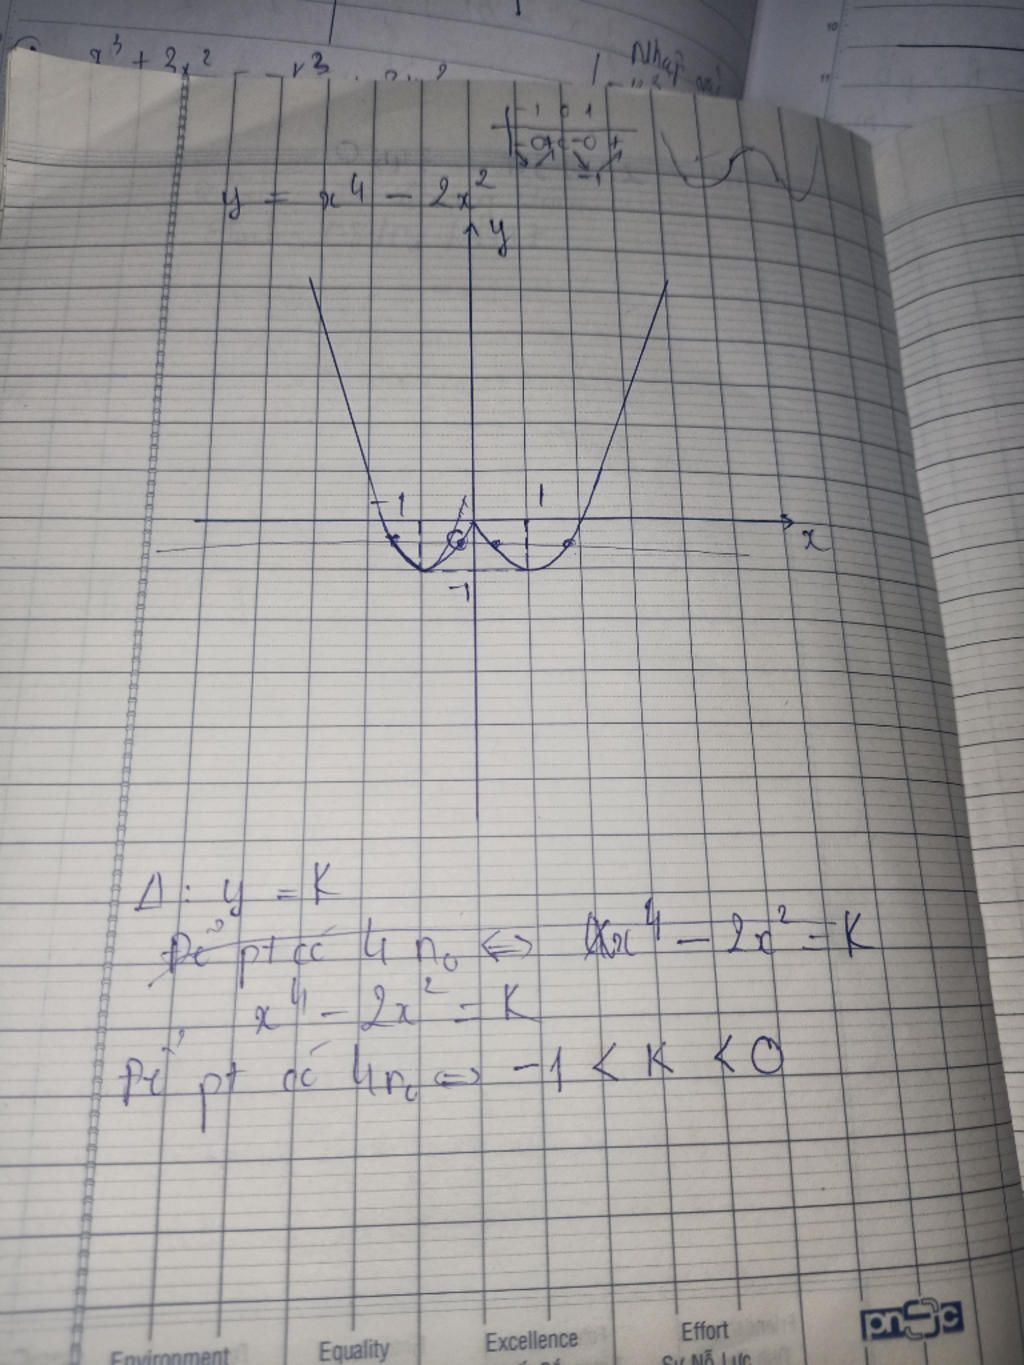 x³ + 3x²
Nhập
10
11
-1 0 1
- 0 + 0 - 0 +
-1
y = x⁴ - 2x²
y
-1 1
x
-1
Δ: y = K
Để pt có 4 n₀ ⇔ x⁴ - 2x² = K
x⁴ - 2x² = K
Để pt có 4n₀ ⇔ -1 < K < 0
Environment Equality Excellence Effort
Sự Nỗ Lực
pnsc